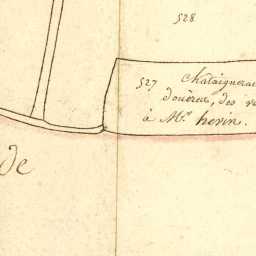 528
527 Chataigneraie
douëres, des
à Mr. hevin.
de